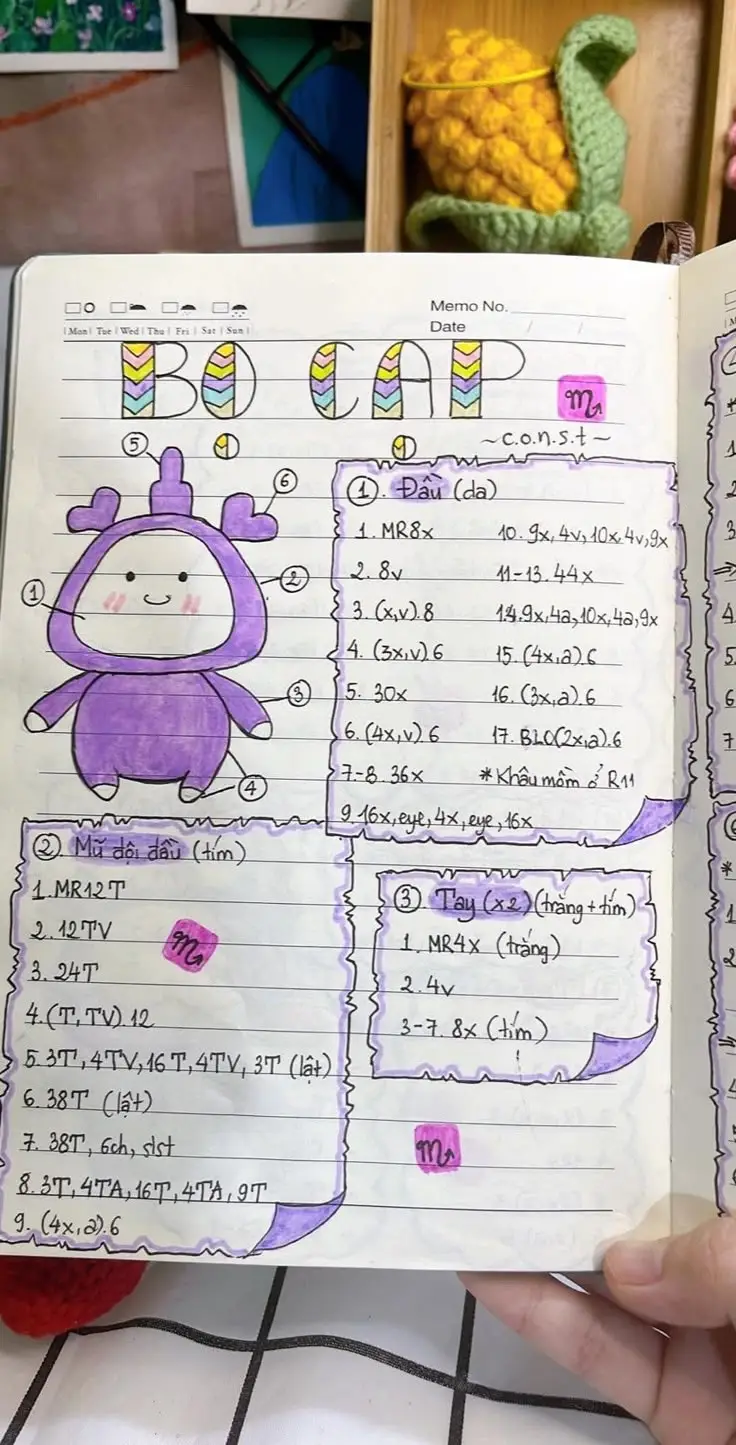 Memo No.
Mon Tue Wed Thu Fri Sat Sun
Date / /
BỌ CẠP
~c.o.n.s.t~
⑤
⑥
①
②
③
④
①. Đầu (da)
1. MR8x
2. 8v
3. (x,v).8
4. (3x,v).6
5. 30x
6. (4x,v).6
7-8. 36x
9. 16x, eye, 4x, eye, 16x
10. 9x, 4v, 10x, 4v, 9x
11-13. 44x
14. 9x, 4a, 10x, 4a, 9x
15. (4x,a).6
16. (3x,a).6
17. BLO(2x,a).6
*Khâu mồm ở R11
②. Mũ đội đầu (tím)
1. MR12T
2. 12TV
3. 24T
4. (T, TV).12
5. 3T, 4TV, 16T, 4TV, 3T (lật)
6. 38T (lật)
7. 38T, 6ch, slst
8. 3T, 4TA, 16T, 4TA, 9T
9. (4x,a).6
③. Tay (x2) (trắng + tím)
1. MR4x (trắng)
2. 4v
3-7. 8x (tím)